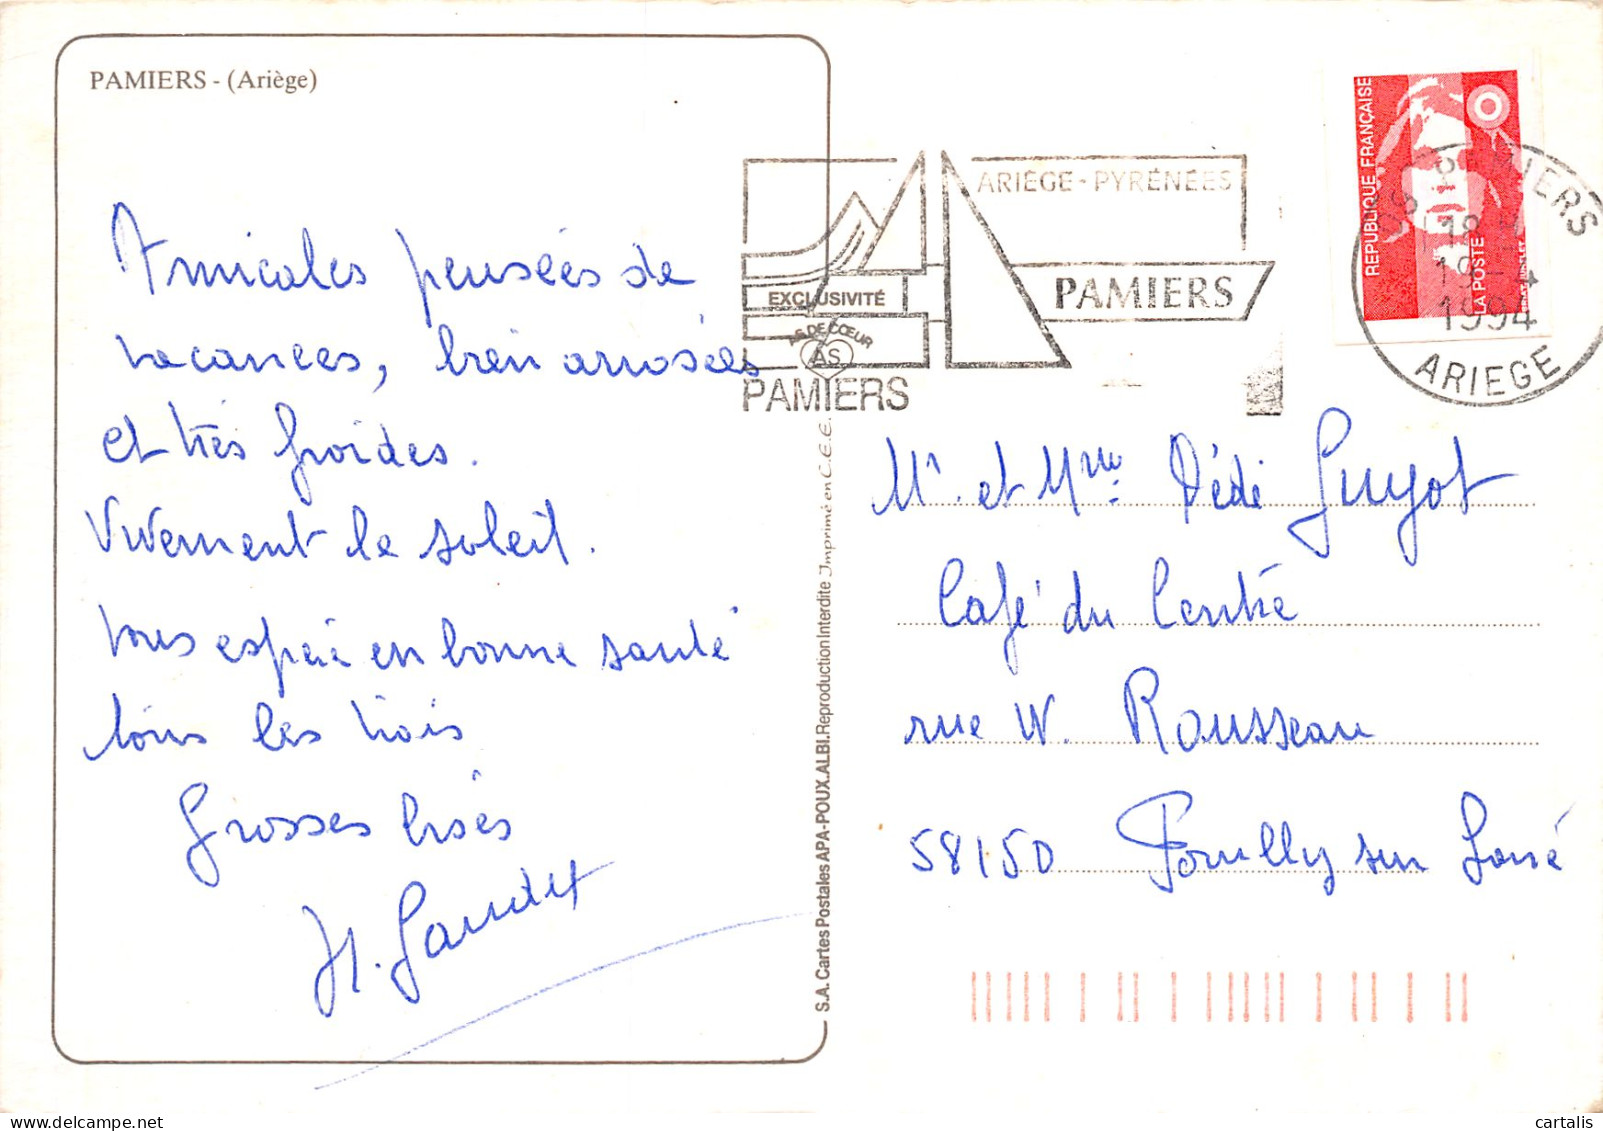 PAMIERS - (Ariège)
Amicales pensées de
vacances, bien arrosées
et très froides.
Vivement le soleil.
Vous espère en bonne santé
tous les trois
Grosses bises
S.A. Cartes Postales APA-POUX.ALBI. Reproduction Interdite Imprimé en C.E.E.
EXCLUSIVITÉ
AS DE CŒUR
AS
PAMIERS
ARIÈGE-PYRÉNÉES
PAMIERS
REPUBLIQUE FRANÇAISE
LA POSTE
PAMIERS
18 H
19-4
1994
ARIEGE
Mr. et Mme Dédé Guyot
Café du Centre
rue W. Rousseau
58150 Pouilly sur Loire
www.delcampe.net
cartalis